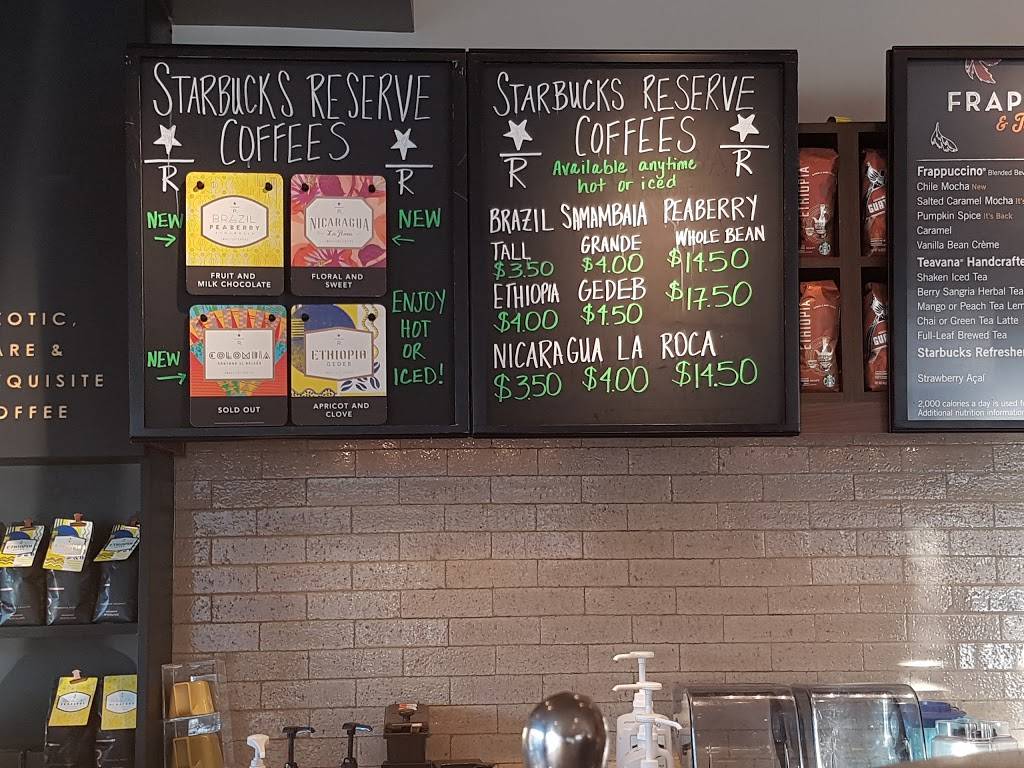 STARBUCKS RESERVE
COFFEES
R
R
NEW
BRAZIL
PEABERRY
FRUIT AND
MILK CHOCOLATE
R
NICARAGUA
La Roca
FLORAL AND
SWEET
NEW
NEW
COLOMBIA
SOLD OUT
R
ETHIOPIA
GEDEB
APRICOT AND
CLOVE
ENJOY
HOT
OR
ICED!
STARBUCKS RESERVE
COFFEES
R
R
Available anytime
hot or iced
BRAZIL SAMAMBAIA PEABERRY
TALL GRANDE WHOLE BEAN
$3.50 $4.00 $14.50
ETHIOPIA GEDEB $17.50
$4.00 $4.50
NICARAGUA LA ROCA
$3.50 $4.00 $14.50
ETHIOPIA
ETHIOPIA
FRAP
&
Frappuccino® Blended Bev
Chile Mocha New
Salted Caramel Mocha It's
Pumpkin Spice It's Back
Caramel
Vanilla Bean Crème
Teavana® Handcrafte
Shaken Iced Tea
Berry Sangria Herbal Tea
Mango or Peach Tea Lem
Chai or Green Tea Latte
Full-Leaf Brewed Tea
Starbucks Refreshe
Strawberry Açaí
2,000 calories a day is used f
Additional nutrition information
OTIC,
ARE &
QUISITE
OFFEE
ETHIOPIA